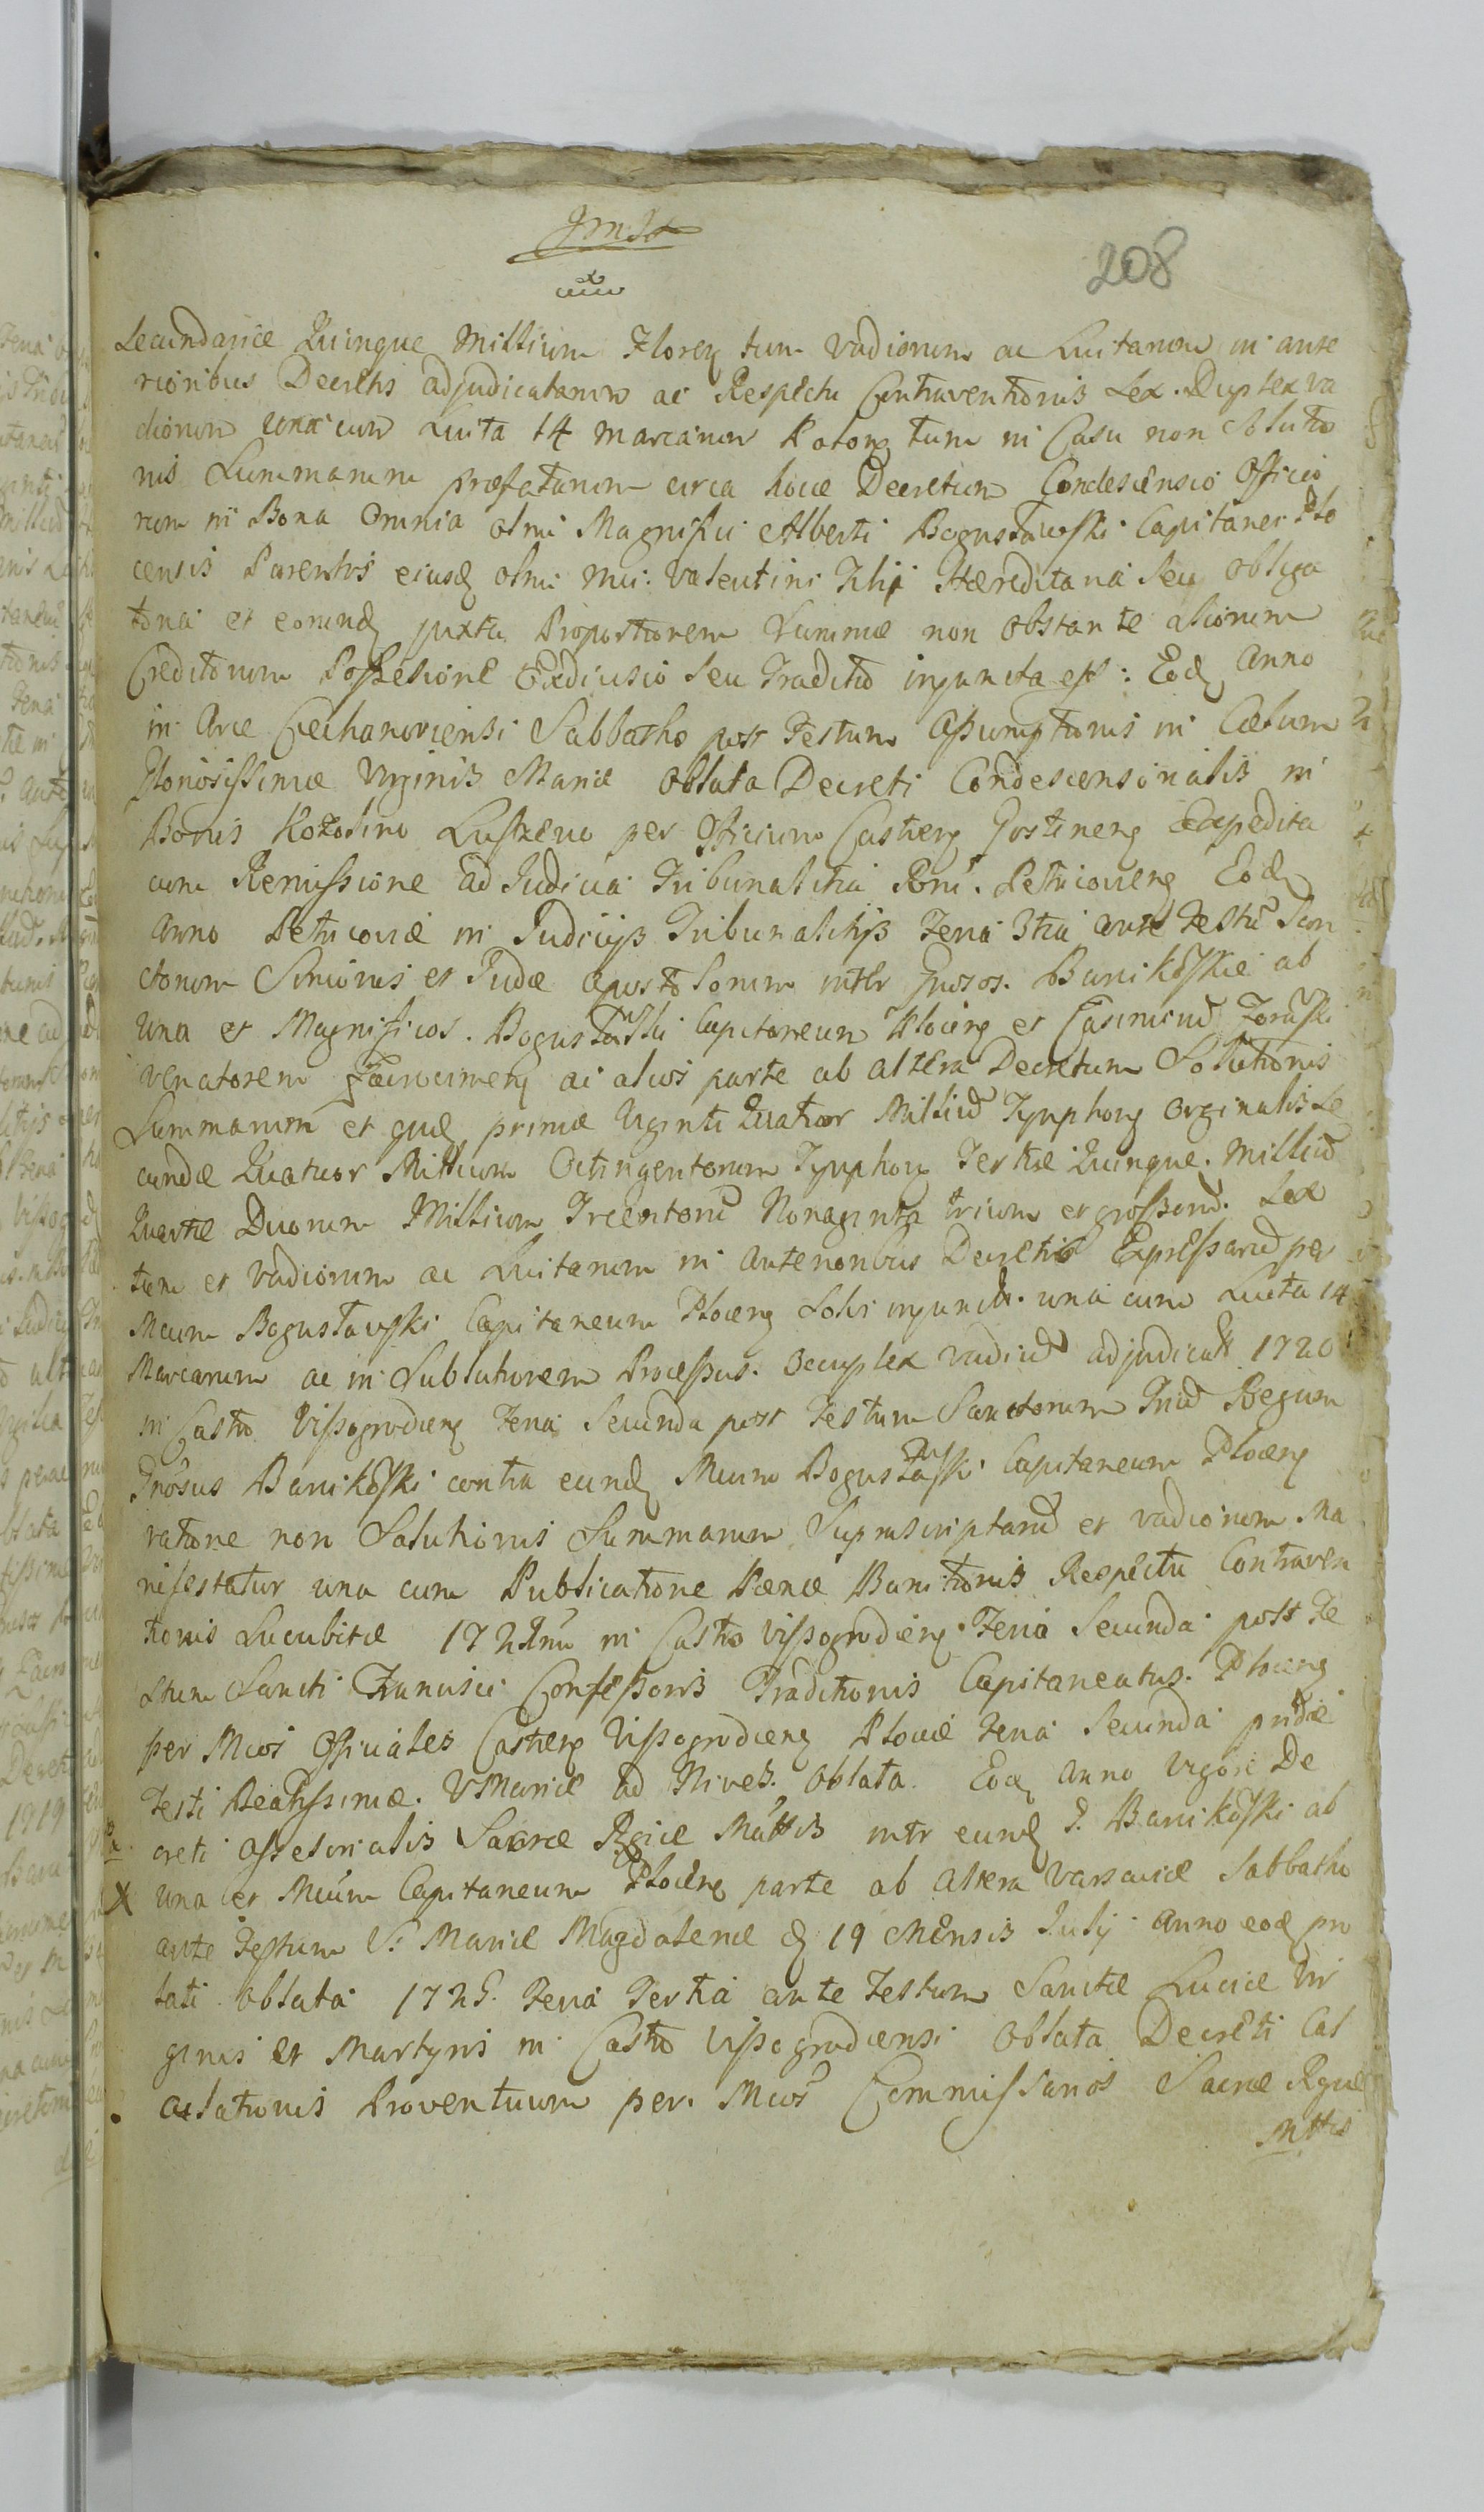 208
Secundariae Quinque Millium Floreņ tum Vadiorum ac Luitarum in ante
rioribus Decretis adjudicatarum ac Respectu Contraventionis Lex. Duplex va
diorum una cum Luita 14 marcarum Poloņ tum in Casu non Solutio
nis Summarum praefatarum circa hocce Decretum Condescensio Officio
rum in Bona Omnia olim Magnifici Alberti Bogusławski Capitanei Plo
censis Parentis ejusđ olim Mci. Valentini Filij Haereditaria Seu obliga
toria et eorunđ juxta Proportionem Summae non obstante aliorum
Creditorum Possesione Exdivisio Seu Traditio injuncta est: Eođ Anno
in Arce Ciechanoviensi Sabbatho post Festum Assumptionis in Caelum
Gloriosissimae Virginis Mariae oblata Decreti Condescensionalis in
Bonis per Officium Castreņ Gostineņ Expedita
cum Remissione ad Judicia Tribunalitia Petricovieņ Eođ
Anno Petricoviae in Judicijs Tribunalitijs Feria 3tia ante Festũ San
ctorum Simonis et Judae Apostolorum inter Gnosos. Barcikowskie ab
una et Magnificos. Bogusławski Capitaneum Ploceņ et Casimirũ
venatorem ac alios parte ab altera Decretum Solutionis
Summarum et quiđ primae Viginti Quatuor Milliũ Tymphoņ Orginalis Se
cundae Quatuor Millium Octingentorum Tymphoņ Tertiae Quinque. Milliũ
Quartae Duorum Millium Trecentorũ Nonaginta trium et grossorũ. Sex
tum et Vadiorum ac Luitarum in anterioribus Decretis Expressarũ per
Mcum Bogusławski Capitaneum Ploceņ Solvi injuncti. una cum Luita 14
Marcarum ac in Subsutionem Processus. Decuplex vadiũ adjudicatt 1720
in Castro Vissogrodieņ Feria Secunda post Festum Sanctorum Triũ Regum
Gnosus Barcikowski contra eunđ Mcum Bogusławski Capitaneum Ploceņ
ratione non Solutionis Summarum Suprascriptarũ et vadiorum Ma
nifestatur una cum Publicatione Paenae Banitionis Respectu Contraven
tionis Sucubitae in Castro Vissogrodieņ Feria Secunda post Fe
stum Sancti Francisci Confessoris Traditionis Capitaneatus. Ploceņ
per Mcos Officiales Castreņ Vissogrodieņ Plociae Feria Secunda pridie
Festi Beatissimae. V Mariae ad Nives. Oblata. Eođ Anno Vigore De
creti Assesorialis Sacrae Rgiae Mattis intr eunđ G. Barcikowski ab
X una et Mcum Capitaneum Ploceņ parte ab altera Varsaviae Sabbatho
ante Festum S. Mariae Magdalenae đ 19 Mensis Julij anno eođ pro
lati oblata 172 Feria Tertia ante Festum Sanctae Luciae Vir
ginis et Martyris in Castro Vissogrodiensi Oblata Decreti Cal
culationis Proventuum per Mcos Commissarios Sacrae Rgiae
Mttis